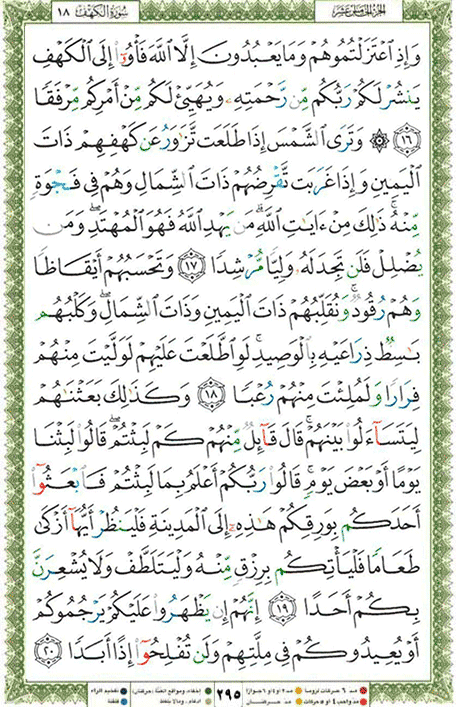 الجزء الخامس عشر
سورة الكهف ١٨
وَإِذِ ٱعْتَزَلْتُمُوهُمْ وَمَا يَعْبُدُونَ إِلَّا ٱللَّهَ فَأْوُۥٓا۟ إِلَى ٱلْكَهْفِ
يَنشُرْ لَكُمْ رَبُّكُم مِّن رَّحْمَتِهِۦ وَيُهَيِّئْ لَكُم مِّنْ أَمْرِكُم مِّرْفَقًا
١٦ ۞ وَتَرَى ٱلشَّمْسَ إِذَا طَلَعَت تَّزَٰوَرُ عَن كَهْفِهِمْ ذَاتَ
ٱلْيَمِينِ وَإِذَا غَرَبَت تَّقْرِضُهُمْ ذَاتَ ٱلشِّمَالِ وَهُمْ فِى فَجْوَةٍ
مِّنْهُ ۚ ذَٰلِكَ مِنْ ءَايَٰتِ ٱللَّهِ ۗ مَن يَهْدِ ٱللَّهُ فَهُوَ ٱلْمُهْتَدِ ۖ وَمَن
يُضْلِلْ فَلَن تَجِدَ لَهُۥ وَلِيًّا مُّرْشِدًا ١٧ وَتَحْسَبُهُمْ أَيْقَاظًا
وَهُمْ رُقُودٌ ۚ وَنُقَلِّبُهُمْ ذَاتَ ٱلْيَمِينِ وَذَاتَ ٱلشِّمَالِ ۖ وَكَلْبُهُم
بَٰسِطٌ ذِرَاعَيْهِ بِٱلْوَصِيدِ ۚ لَوِ ٱطَّلَعْتَ عَلَيْهِمْ لَوَلَّيْتَ مِنْهُمْ
فِرَارًا وَلَمُلِئْتَ مِنْهُمْ رُعْبًا ١٨ وَكَذَٰلِكَ بَعَثْنَٰهُمْ
لِيَتَسَآءَلُوا۟ بَيْنَهُمْ ۚ قَالَ قَآئِلٌ مِّنْهُمْ كَمْ لَبِثْتُمْ ۖ قَالُوا۟ لَبِثْنَا
يَوْمًا أَوْ بَعْضَ يَوْمٍ ۚ قَالُوا۟ رَبُّكُمْ أَعْلَمُ بِمَا لَبِثْتُمْ فَٱبْعَثُوٓا۟
أَحَدَكُم بِوَرِقِكُمْ هَٰذِهِۦٓ إِلَى ٱلْمَدِينَةِ فَلْيَنظُرْ أَيُّهَآ أَزْكَىٰ
طَعَامًا فَلْيَأْتِكُم بِرِزْقٍ مِّنْهُ وَلْيَتَلَطَّفْ وَلَا يُشْعِرَنَّ
بِكُمْ أَحَدًا ١٩ إِنَّهُمْ إِن يَظْهَرُوا۟ عَلَيْكُمْ يَرْجُمُوكُمْ
أَوْ يُعِيدُوكُمْ فِى مِلَّتِهِمْ وَلَن تُفْلِحُوٓا۟ إِذًا أَبَدًا ٢٠
٢٩٥